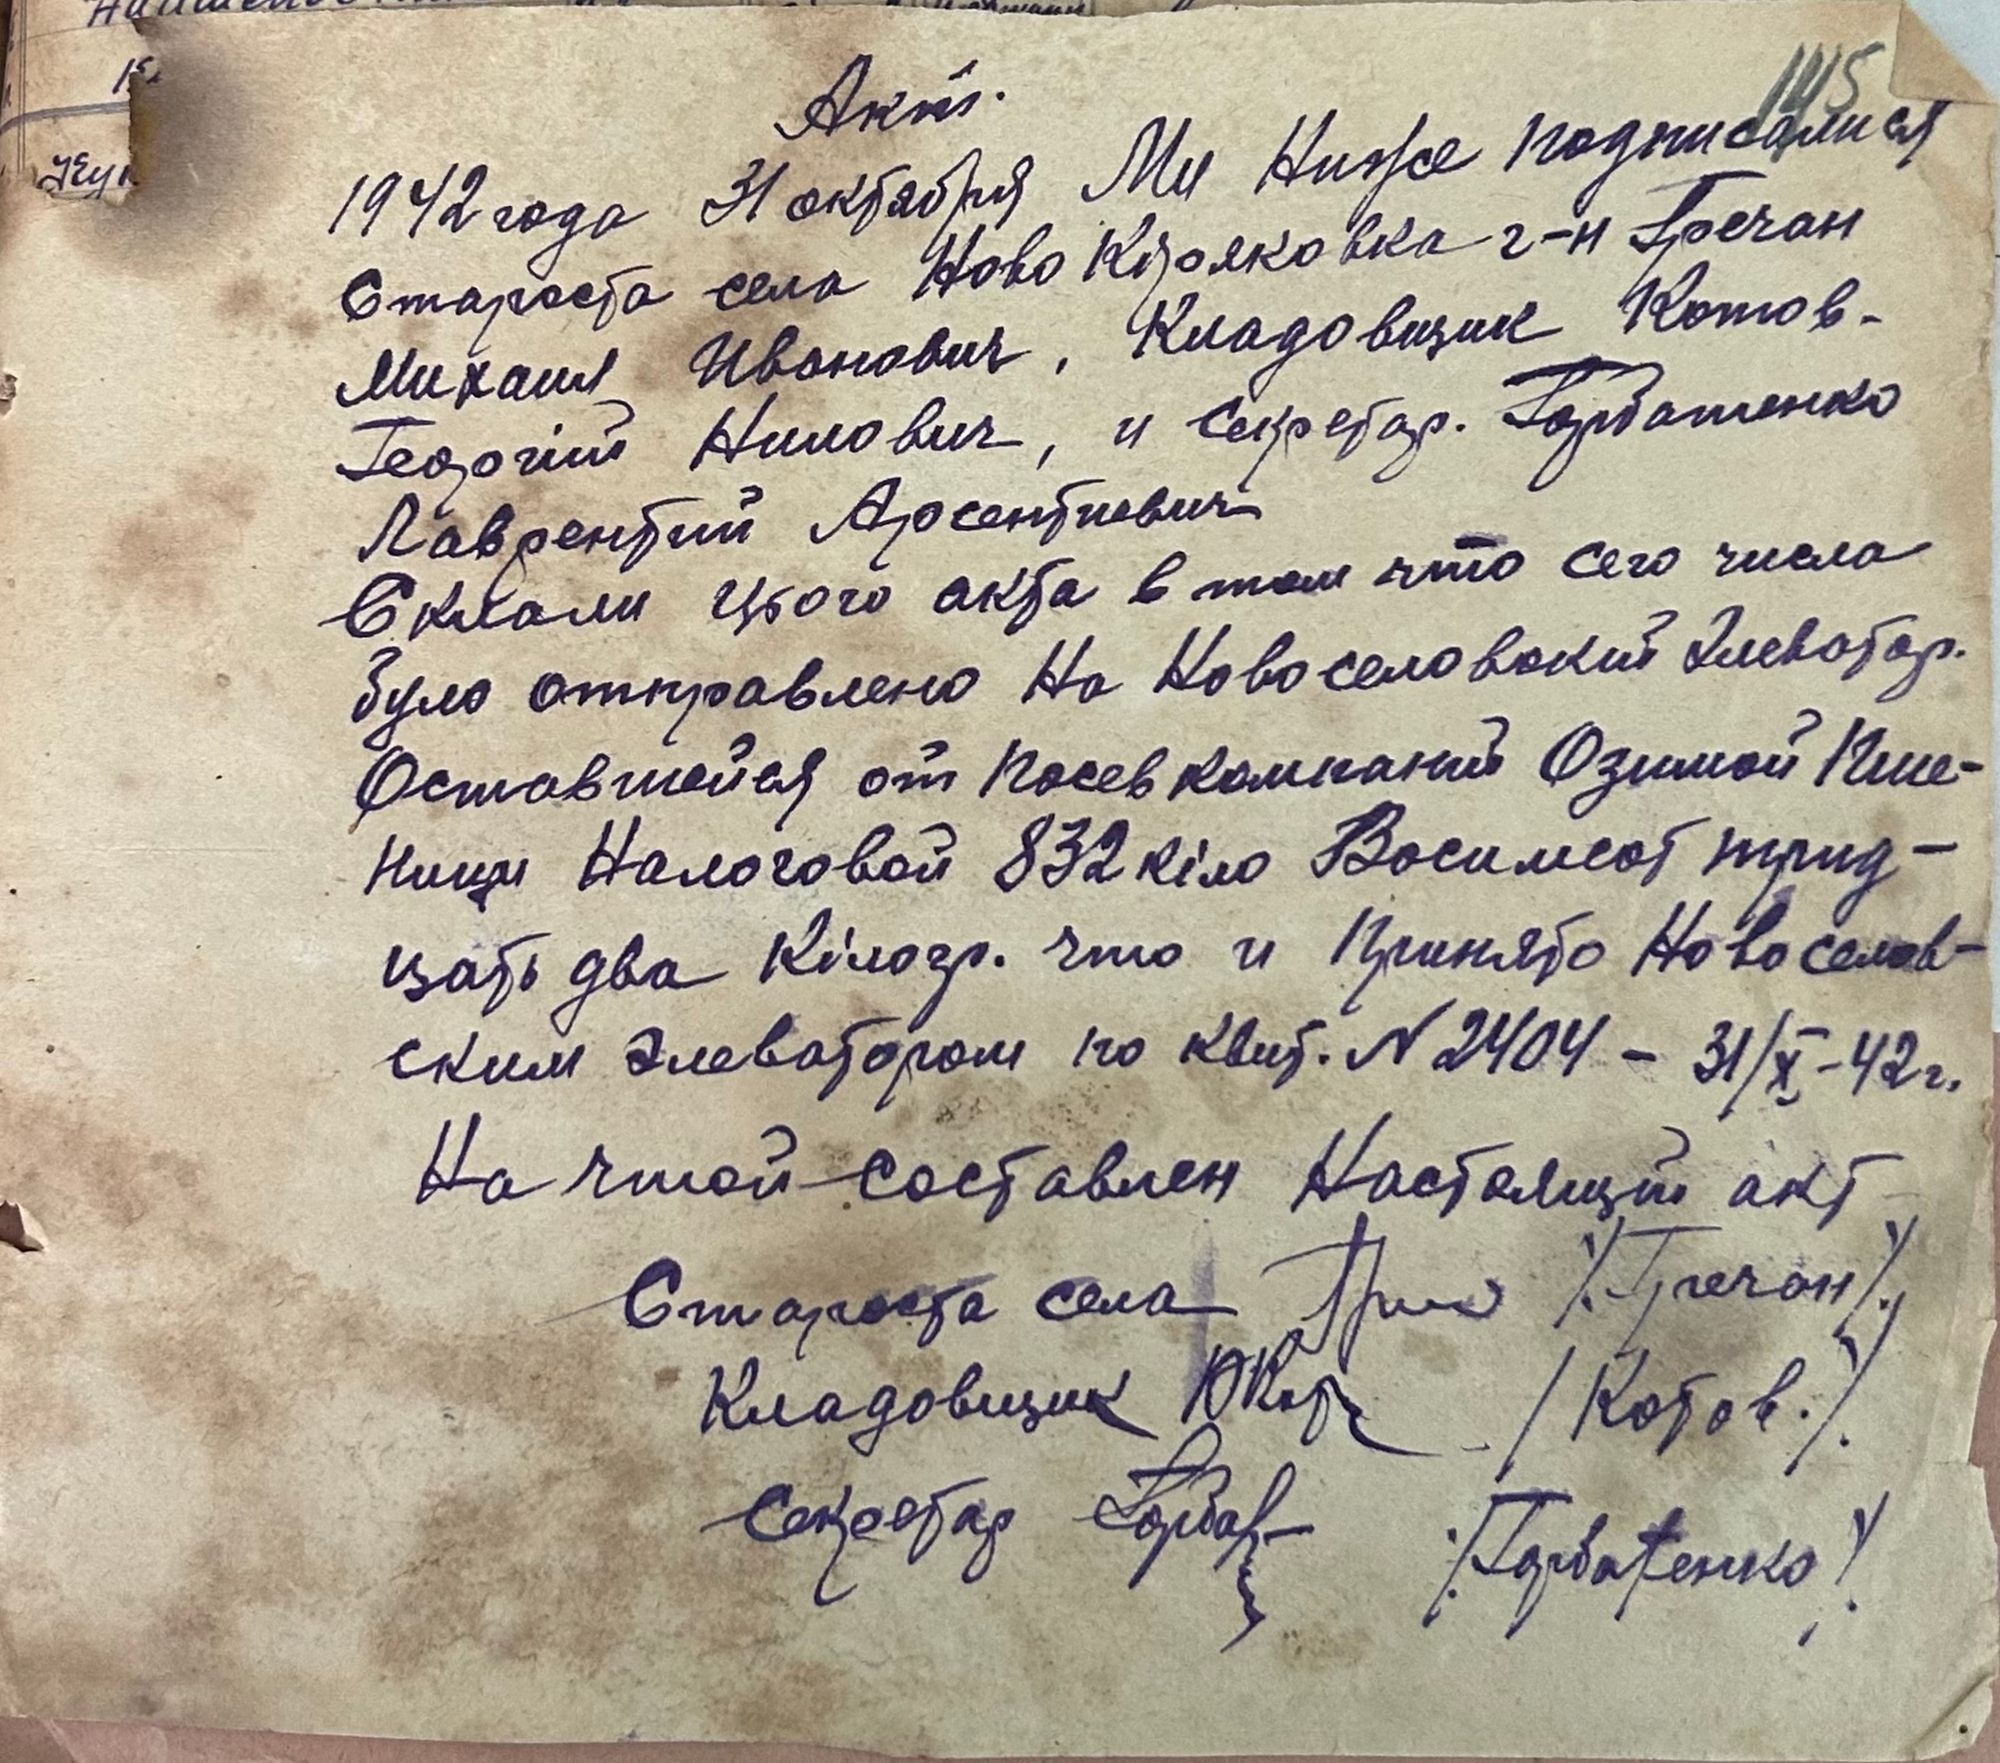 145
Акт.
1942 года 31 октября Ми Ниже подписалися
Староста села Ново Кіряковка г-н Гречан
Михаил Иванович, Кладовщик Котов-
Георгій Нилович, и секретар. Горбатенко
Лаврентий Арсентиевич
Склали цього акта в том что сего числа
було отправлено На Новоселовский Элеватор.
Оставшейся от Посевкомпаний Озимой Пше-
ници Налоговой 832 кіло Восимсот трид-
цать два Кілогр. что и Принято Новоселов-
ским Элеватором по квит. N 2404 - 31/X-42 г.
На чтой составлен Настоящий акт
Староста села /Гречан/
Кладовщик /Котов./
секретар /Горбатенко/